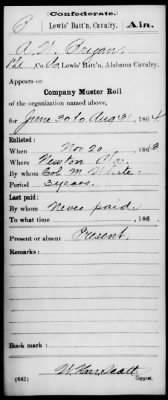 Confederate.
P Lewis' Batt'n, Cavalry. Ala.
A. W.
Pvt, Co. , Lewis' Batt'n, Alabama Cavalry.
Appears on
Company Muster Roll
of the organization named above,
for June 30 to Aug 31, 1864
Enlisted:
When Nov 20, 1863
Where Newton Ala.
By whom Col. M. White
Period 3 years.
Last paid:
By whom Never paid
To what time , 186 .
Present or absent Present.
Remarks:
Book mark:
(642) Copyist.